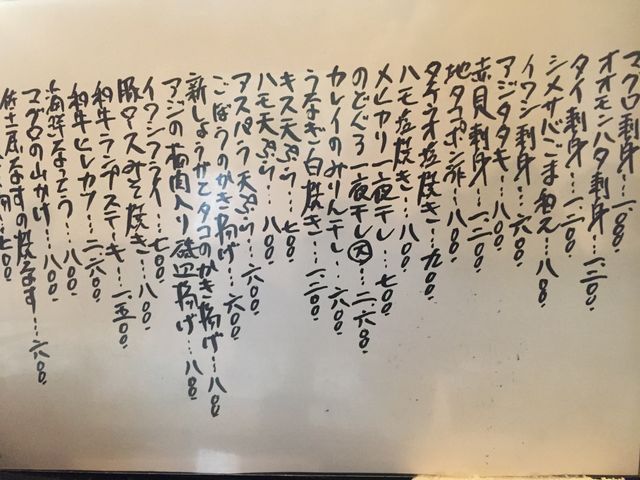 マグロ刺身…一、八〇〇
オオモンハタ刺身…一、二〇〇
タイ刺身…一、二〇〇
シメサバごま和え…八〇〇
イワシ刺身…六〇〇
アジタタキ…八〇〇
赤貝刺身…一、二〇〇
地タコポン酢…八〇〇
タチウオ塩焼き…九〇〇
ハモ塩焼き…八〇〇
メヒカリ一夜干し…七〇〇
のどぐろ一夜干し大…二、六〇〇
カレイのみりん干し…六〇〇
うなぎ白焼き…一、二〇〇
キス天ぷら…七〇〇
ハモ天ぷら…八〇〇
アスパラ天ぷら…六〇〇
ごぼうのかき揚げ…六〇〇
新しょうがとタコのかき揚げ…八〇〇
アジの梅肉入り磯辺揚げ…八〇〇
イワシフライ…七〇〇
豚ロースみそ焼き…八〇〇
和牛ランプステーキ…一、五〇〇
和牛ヒレカツ…二、六〇〇
海鮮なっとう…八〇〇
マグロの山かけ…八〇〇
なすの焼なす…六〇〇
七〇〇